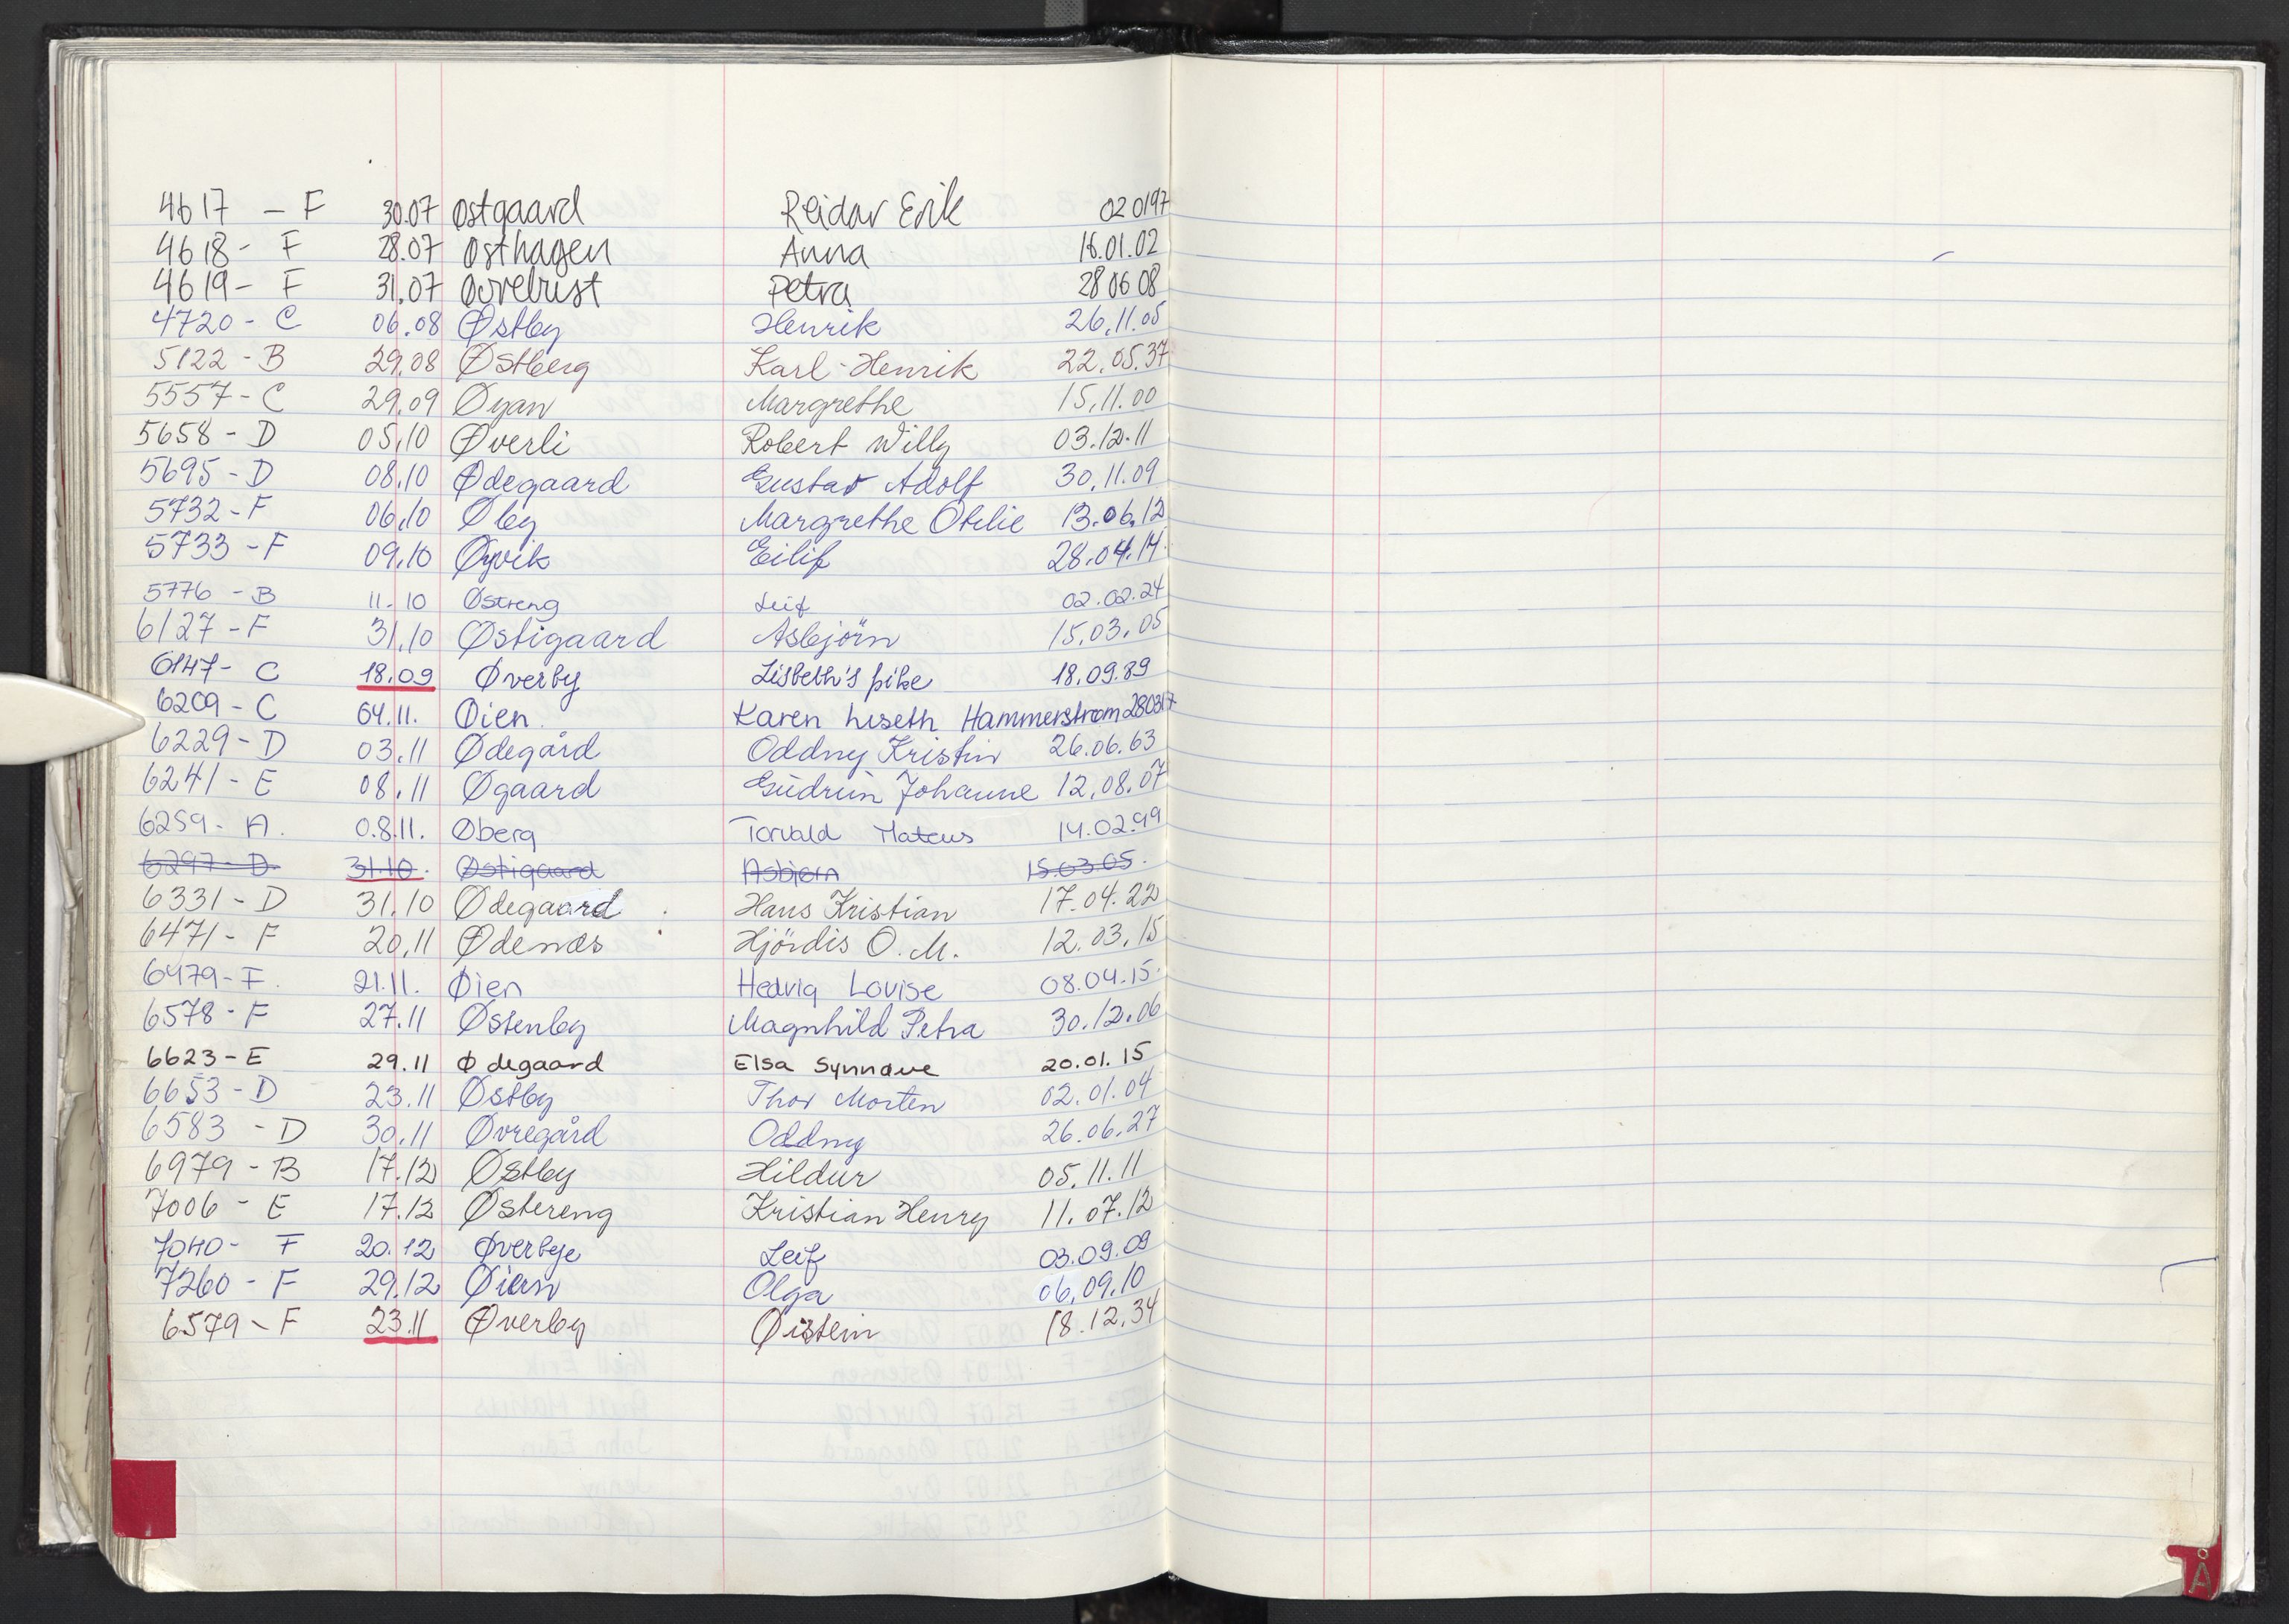 4617 - F 30.07 Østgaard Reidar Erik 02 01 97
4618 - F 28.07 Østhagen Anna 16.01.02
4619 - F 31.07 Øvrebust Petra 28 06 08
4720 - C 06.08 Østby Henrik 26.11.05
5122 - B 29.08 Østberg Karl-Henrik 22.05.37
5557 - C 29.09 Øyan Margrethe 15.11.00
5658 - D 05.10 Øverli Robert Willy 03.12.11
5695 - D 08.10 Ødegaard Gustav Adolf 30.11.09
5732 - F 06.10 Øby Margrethe Otelie 13.06.12
5733 - F 09.10 Øyvik Eilif 28.04.14.
5776 - B 11.10 Østreng Leif 02.02.24
6127 - F 31.10 Østigaard Asbjörn 15.03.05
6147 - C 18.09 Øverby Lisbeth's pike 18.09.89
6209 - C 04.11. Øien. Karen Liseth Hammerstrøm 280317
6229 - D 03.11 Ødegård Oddny Kristin 26.06.63
6241 - E 08.11 Øgaard Gudrun Johanne 12.08.07
6259 - A. 0.8.11. Øberg Torvald Mateus 14.02.99
6297 - D. 31.10. Østigaard Asbjørn 15.03.05.
6331 - D 31.10 Ødegaard Hans Kristian 17.04.22
6471 - F 20.11 Ødenæs Hjördis O. M. 12.03.15
6479 - F. 21.11. Øien Hedvig Lovise 08.04.15.
6578 - F 27.11 Østenby Magnhild Petra 30.12.06
6623 - E 29.11 Ødegaard Elsa Synnøve 20.01.15
6653 - D 23.11 Østby Thor Morten 02.01.04
6583 - D 30.11 Øvregård Oddny 26.06.27
6979 - B 17.12 Østby Hildur 05.11.11
7006 - E 17.12 Østereng Kristian Henry 11.07.12
7040 - F 20.12 Øverbye Leif 03.09.09
7260 - F 29.12 Øien Olga 06.09.10
6579 - F 23.11 Øverby Øistein 18.12.34
Å